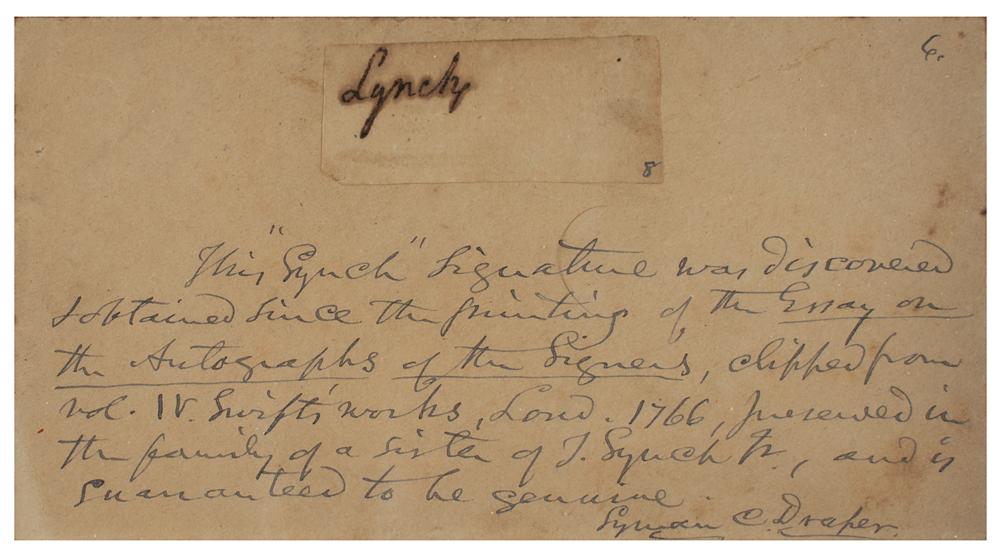 Lynch
6.
8
This "Lynch" signature was discovered
& obtained since the printing of the Essay on
the Autographs of the Signers, clipped from
vol. IV. Swift's works, Lond. 1766, preserved in
the family of a sister of T. Lynch Jr., and is
guaranteed to be genuine.
Lyman C. Draper.